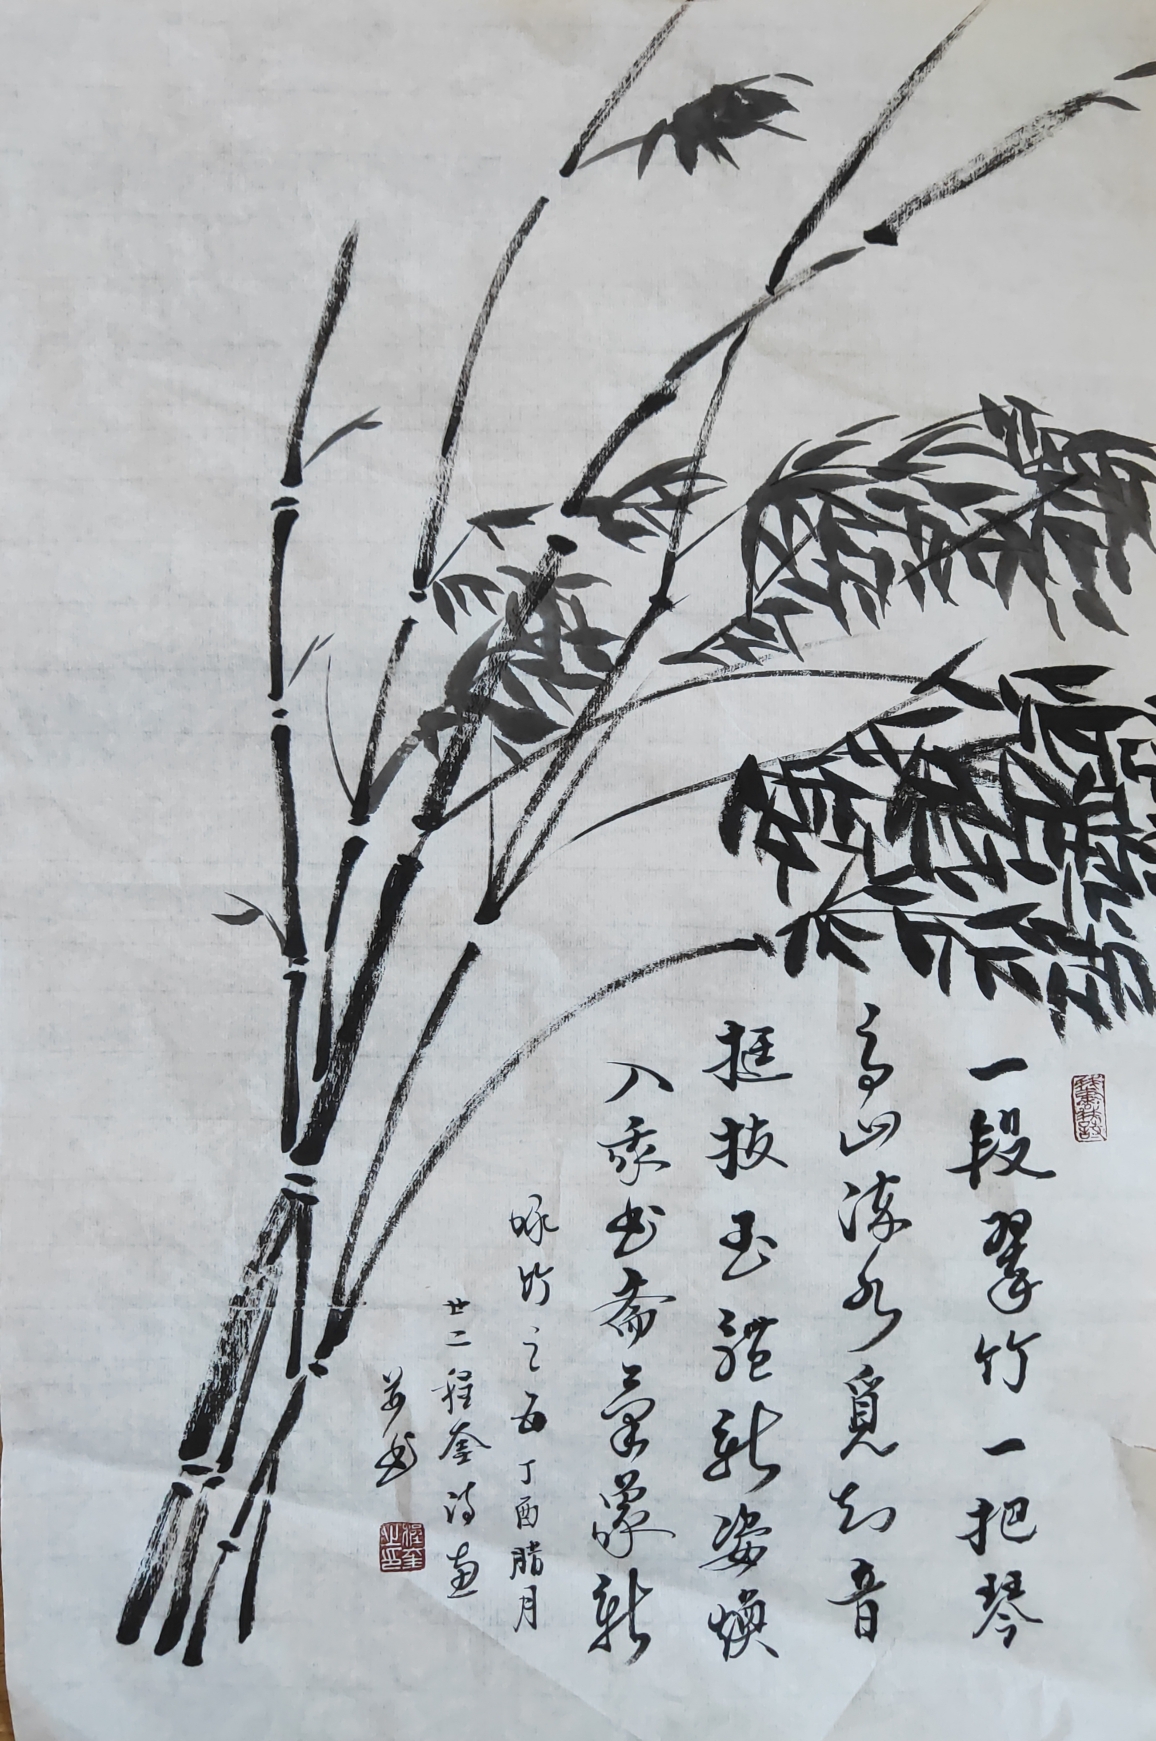 一段翠竹一把琴
高山流水觅知音
挺拔玉體新姿焕
入乘书斋气象新
咏竹之五丁酉腊月
廿二程奎诗画
并书